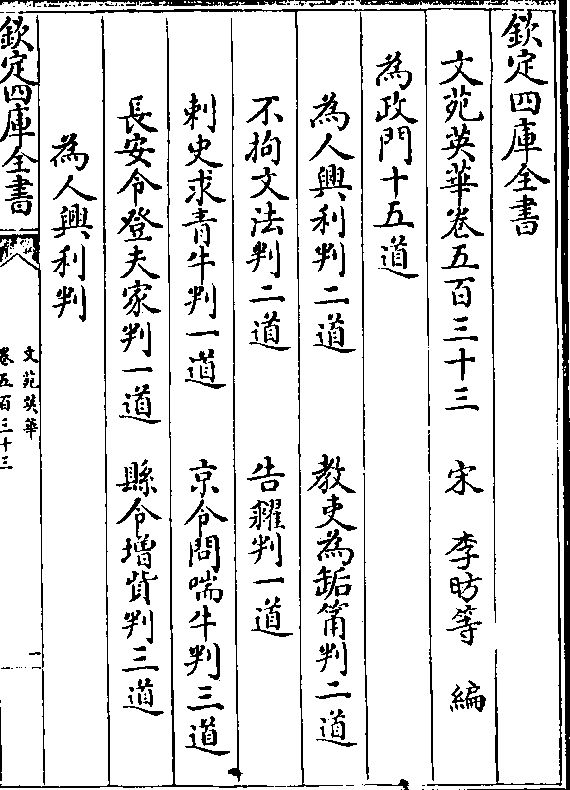 欽定四庫全書
文苑英華卷五百三十三 宋 李昉等 編
為政門十五道
為人興利判二道 教吏為缿筩判二道
不拘文法判二道 告糴判一道
刺史求青牛判一道 京令問喘牛判三道
長安令登夫家判一道 縣令増貲判三道
為人興利判
欽定四庫全書
文苑英華
卷五百三十三
一